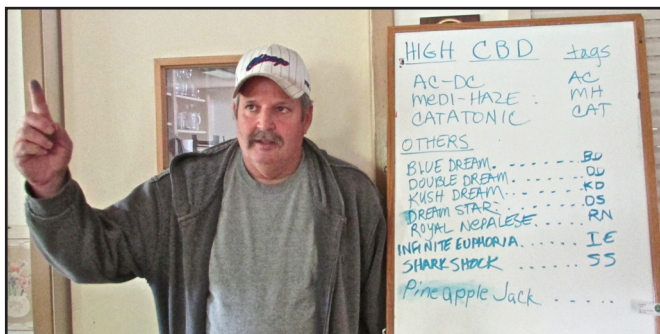 HIGH CBD tags
AC-DC AC
MEDI-HAZE : MH
CATATONIC CAT
OTHERS
BLUE DREAM. - - - - - - - BD
DOUBLE DREAM. - - - - - - DD
KUSH DREAM. - - - - - - KD
DREAM STAR- - - - - - - DS
ROYAL NEPALESE. . . . . . RN
INFINITE EUPHORIA. . . . . . IE
SHARKSHOCK . . . . . . SS
Pineapple Jack . . . . .